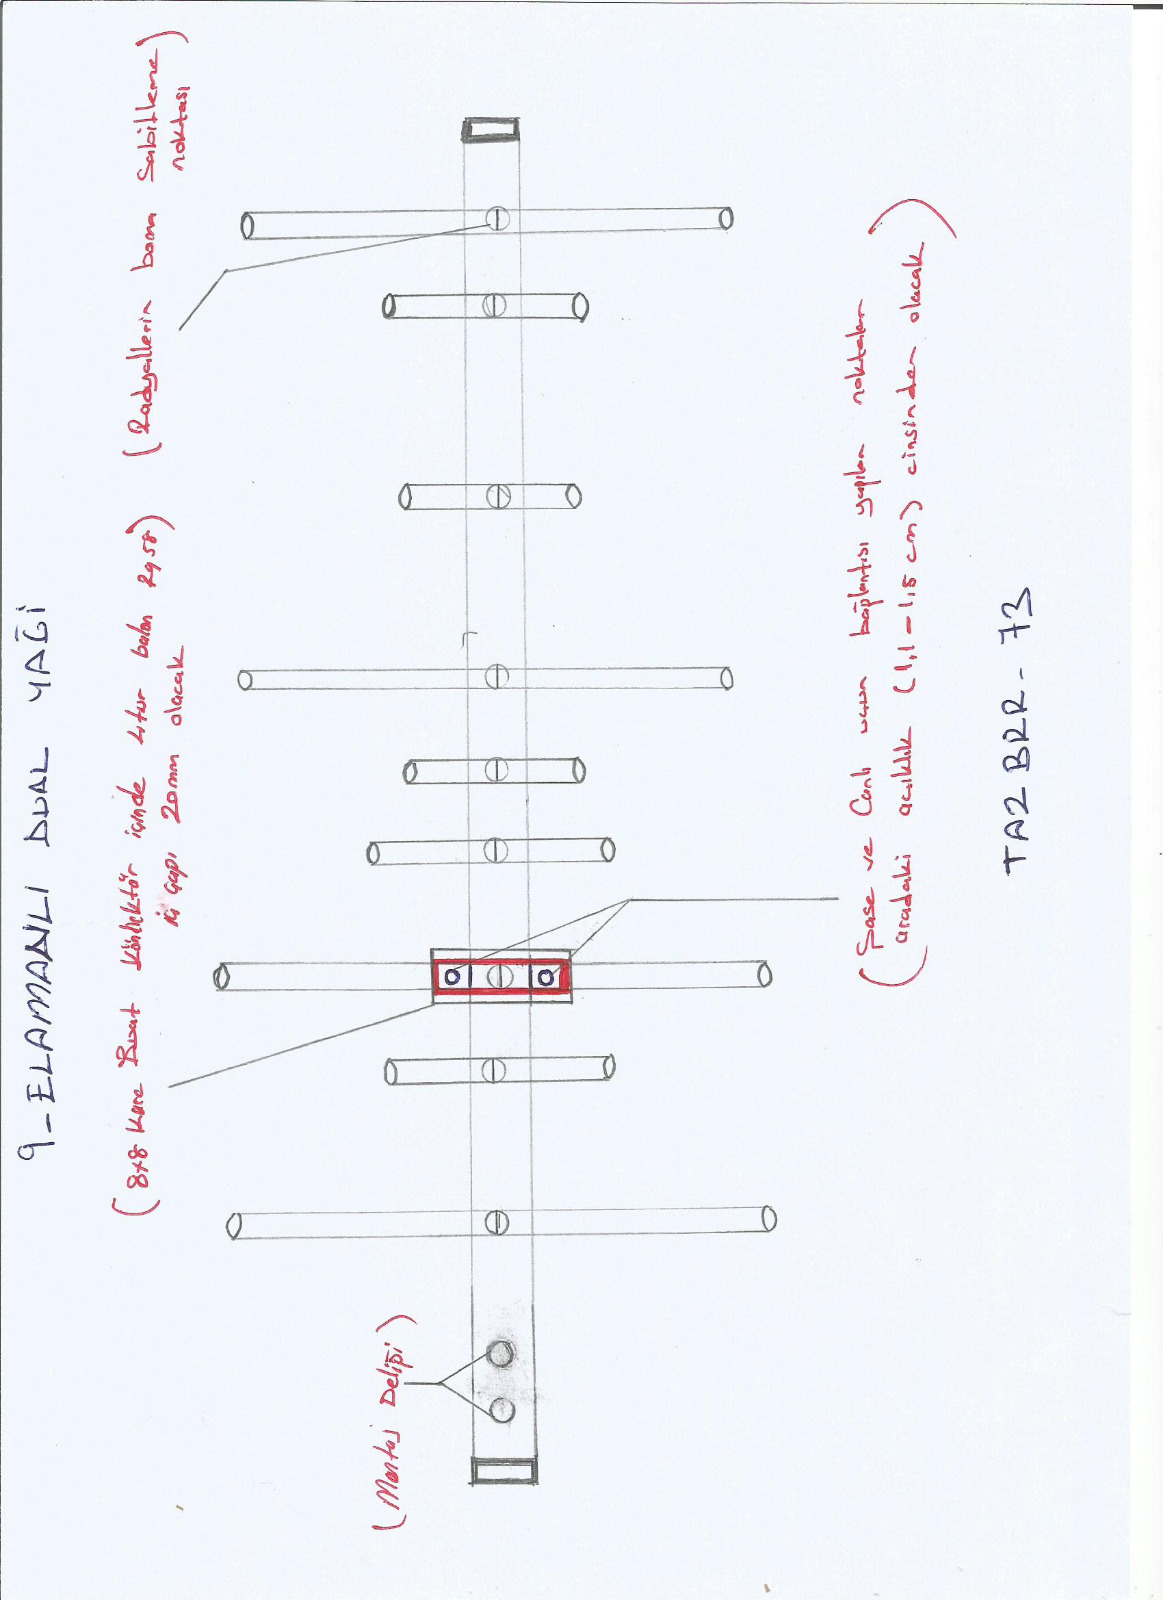 9-ELAMANLI DUAL YAĞİ
(8x8 Kare Buat Konnektör içinde 4 tur balon RG58)
iç çapı 20mm olacak
(Radyallerin boma Sabitleme
noktası)
(Montaj Deliği)
(Şase ve Canlı ucun bağlantısı yapılan noktalar
aradaki açıklık (1,1-1,5 cm) cinsinden olacak)
TA2BRR-73